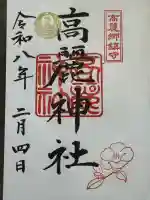 高麗郷鎮守
高麗神社
令和八年 二月四日